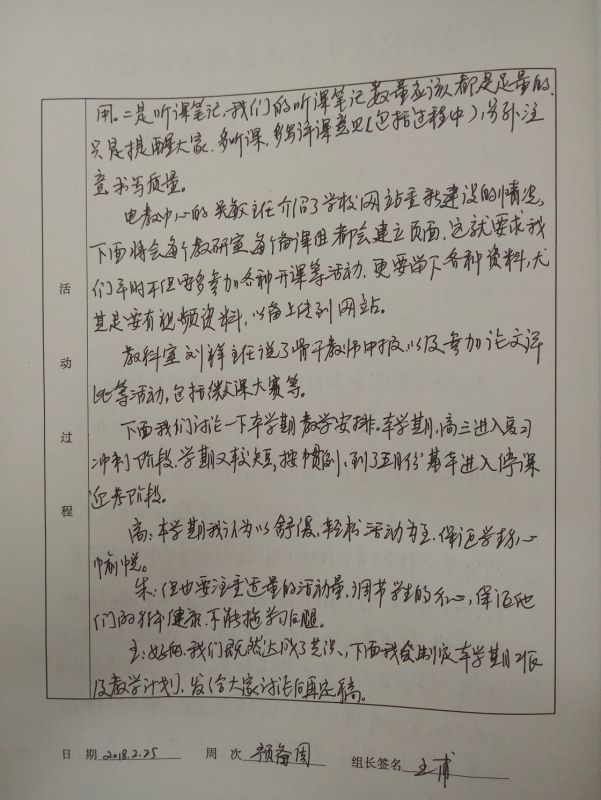 用。二是听课笔记,我们的听课笔记数量应该都是足量的,
只是提醒大家,多听课,多写评课意见(包括过程中),另外注
意书写质量。
电教中心的吴敏主任介绍了学校网站重新建设的情况,
下面将会每个教研室每个备课组都会建立页面,这就要求我
们平时不但要多参加各种开课等活动,更要留下各种资料,尤
其是要有视频资料,以备上传到网站。
教科室刘锋主任说了骨干教师申报,以及参加论文评
比等活动,包括微课大赛等。
下面我们讨论一下本学期教学安排。本学期,高三进入复习
冲刺阶段,学期又较短,按惯例,到了五月份基本进入停课
迎考阶段。
高:本学期我认为以舒缓,轻松活动为主,保证学生身心
愉悦。
朱:但也要注重适量的活动量,调节学生的身心,保证他
们的身体健康,不能拖学习后腿。
王:好的,我们既然达成了共识,下面我会制定本学期工作
及教学计划,发给大家讨论后再定稿。
活
动
过
程
日 期 2018.2.25 周 次 预备周 组长签名 王甫